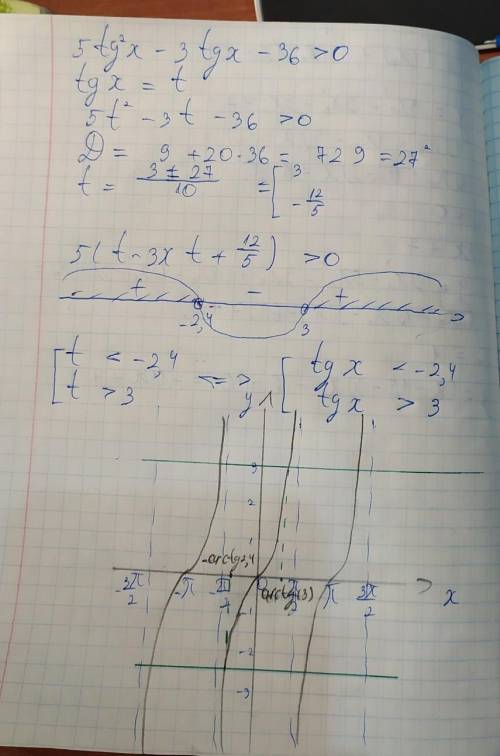 5tg²x - 3tgx - 36 > 0
tgx = t
5t² - 3t - 36 > 0
D = 9 + 20·36 = 729 = 27²
t = (3 ± 27)/10 = [ 3
-12/5
5(t - 3)(t + 12/5) > 0
+ - +
-2,4 3
[ t < -2,4 <=> [ tgx < -2,4
t > 3 tgx > 3
y
3
2
1
-arctg2,4
-3π/2 -π -π/2 0 arctg(3) π/2 π 3π/2 x
-1
-2
-3